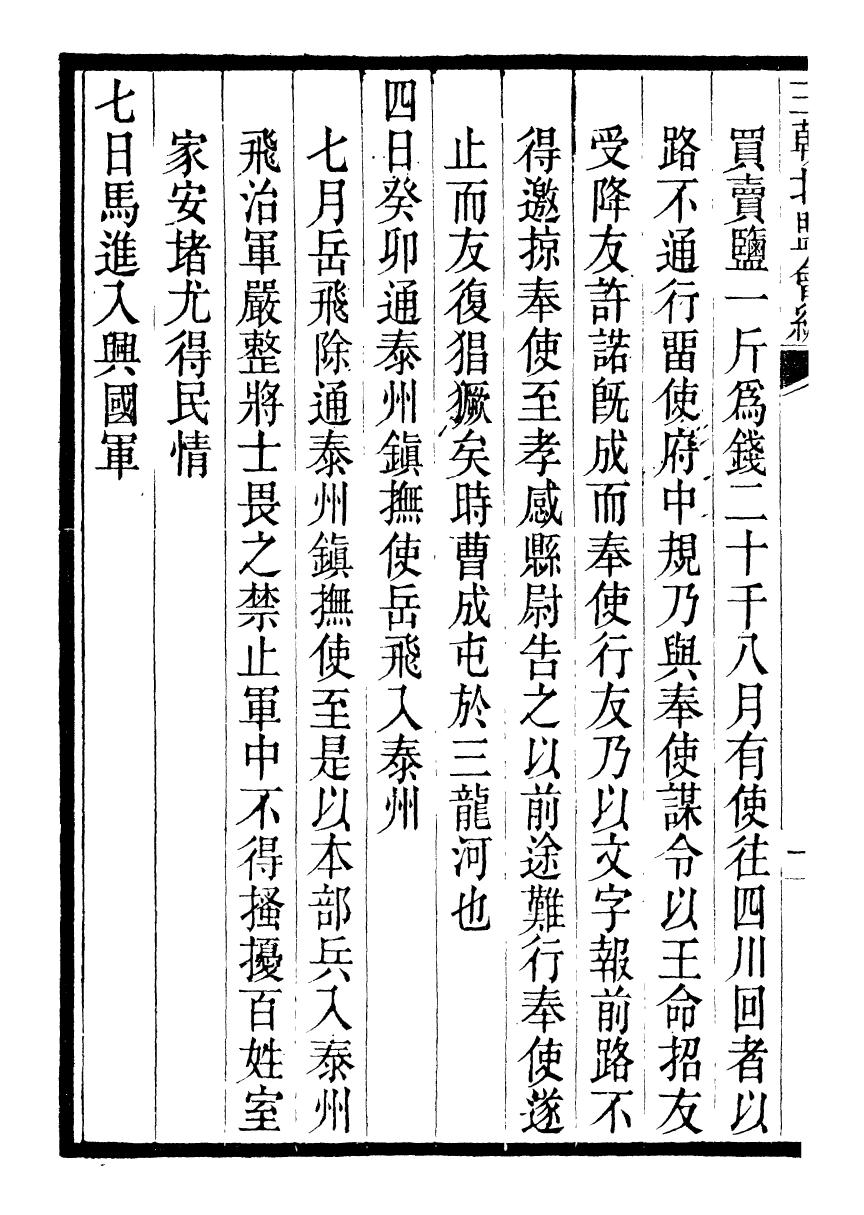 三朝北盟會編
一
買賣鹽一斤爲錢二十千八月有使往四川回者以
路不通行畱使府中規乃與奉使謀令以王命招友
受降友許諾旣成而奉使行友乃以文字報前路不
得邀掠奉使至孝感縣尉告之以前途難行奉使遂
止而友復猖獗矣時曹成屯於三龍河也
四日癸卯通泰州鎭撫使岳飛入泰州
七月岳飛除通泰州鎭撫使至是以本部兵入泰州
飛治軍嚴整將士畏之禁止軍中不得搔擾百姓室
家安堵尤得民情
七日馬進入興國軍